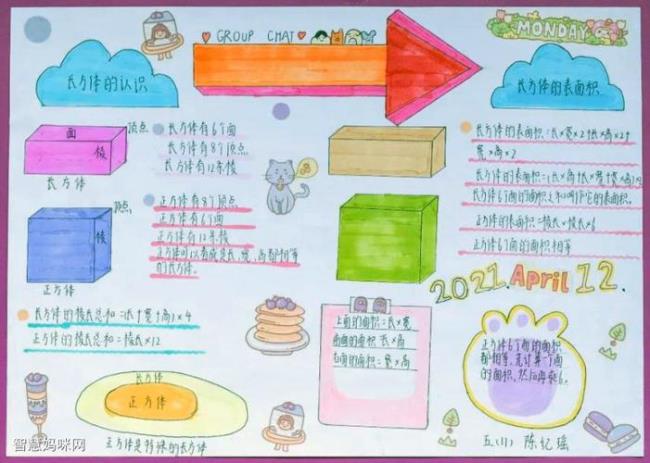 GROUP CHAT
MONDAY
长方体的认识
长方体的表面积
面
顶点
棱
长方体
长方体有6个面
长方体有8个顶点
长方体有12条棱
顶点
棱
正方体
正方体有8个顶点
正方体有6个面
正方体有12条棱
正方体可以看成是长、宽、高都相等
的长方体。
长方体的表面积=长×宽×2+长×高×2+
宽×高×2
长方体的表面积=(长×高+长×宽+宽×高)×2
长方体6个面的面积之和叫作它的表面积。
正方体的表面积=棱长×棱长×6
正方体6个面的面积相等
2021.April 12.
长方体的棱长总和=(长+宽+高)×4
正方体的棱长总和=棱长×12
上面的面积=长×宽
面的面积 长×高
右面的面积=宽×高
正方体6个面的面积
都相等,先计算一个面
的面积,然后再乘6。
长方体
正方体
正方体是特殊的长方体
五、(1) 陈忆瑶
智慧妈咪网